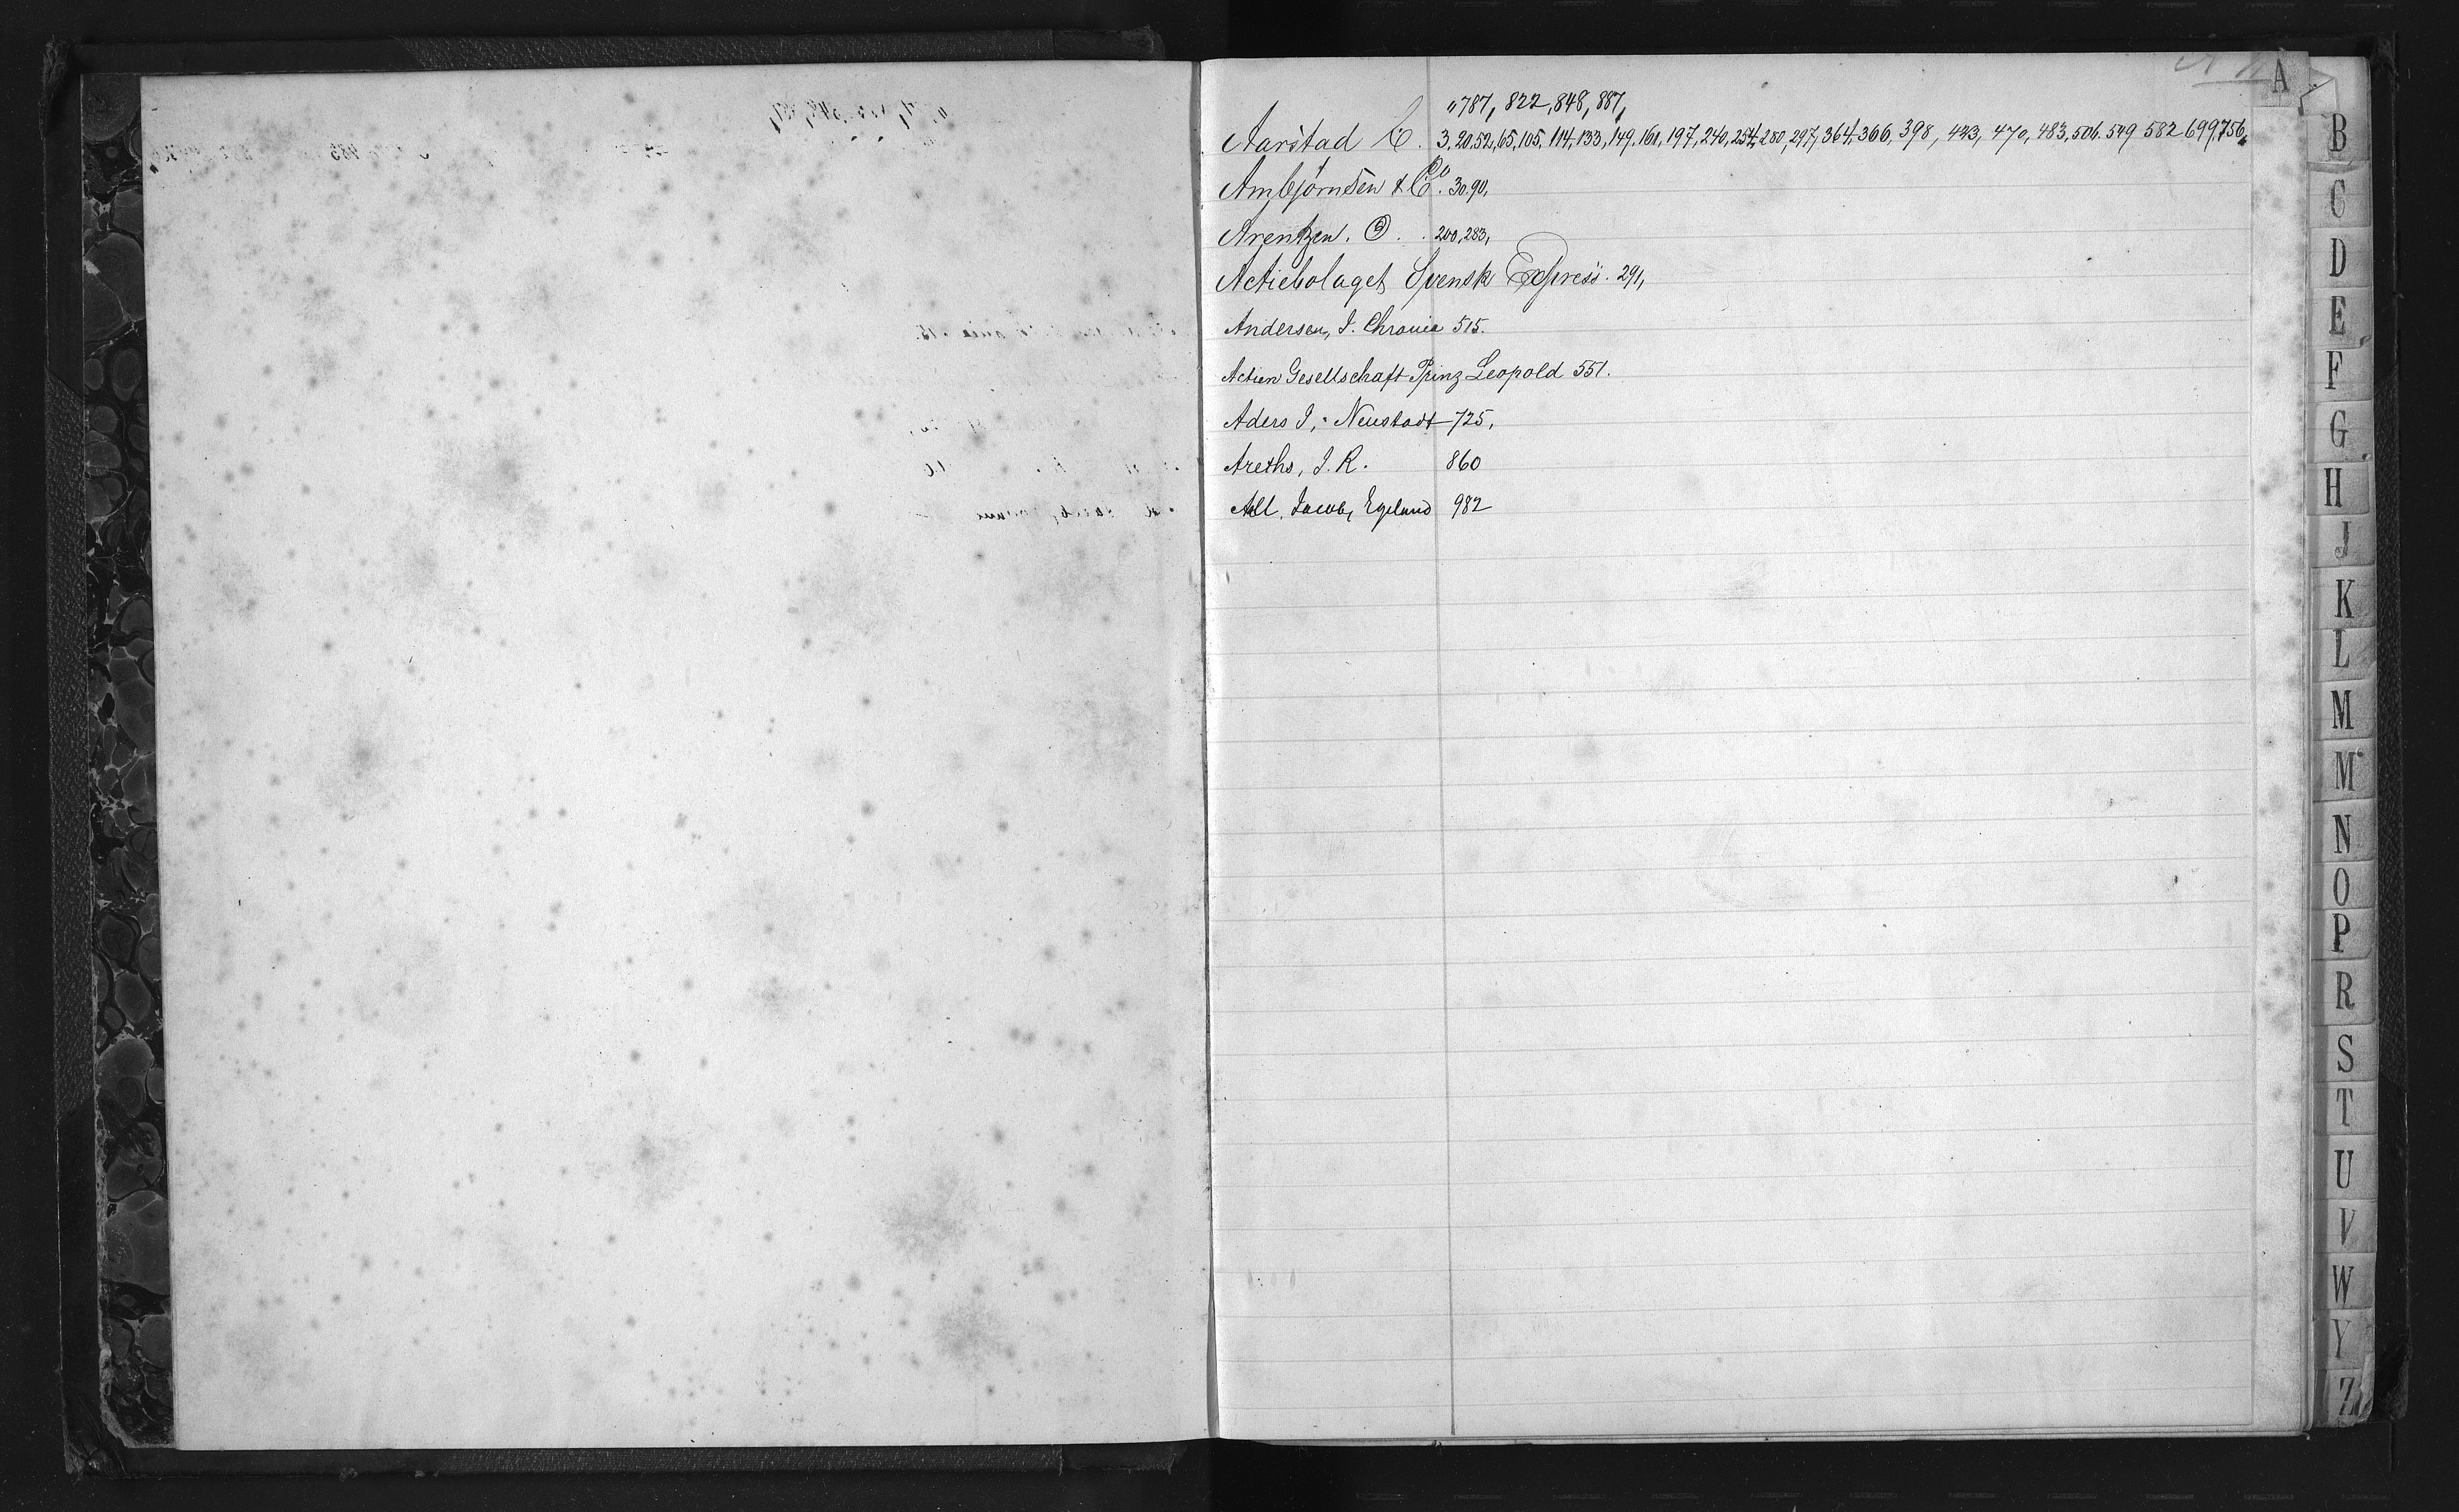 A
„787, 822, 848, 887,
Aarstad C. 3, 20, 52, 65, 105, 114, 133, 149, 161, 197, 240, 254, 280, 297, 364, 366, 398, 443, 470, 483, 506. 549 582 699, 756,
Ambjörnsen & Co. 30. 90,
Arentzen. 200, 283,
Actiebolaget Svensk Express. 291,
Andersen, I. Chrania 515.
Actien Gesellschaft Prinz Leopold 551.
Aders I, Neustadt 725,
Areths, J. R. 860
Aall, Jacob, Egeland 982
B
C
D
E
F
G
H
J
K
L
M
Mc
N
O
P
R
S
T
U
V
W
Y
Z